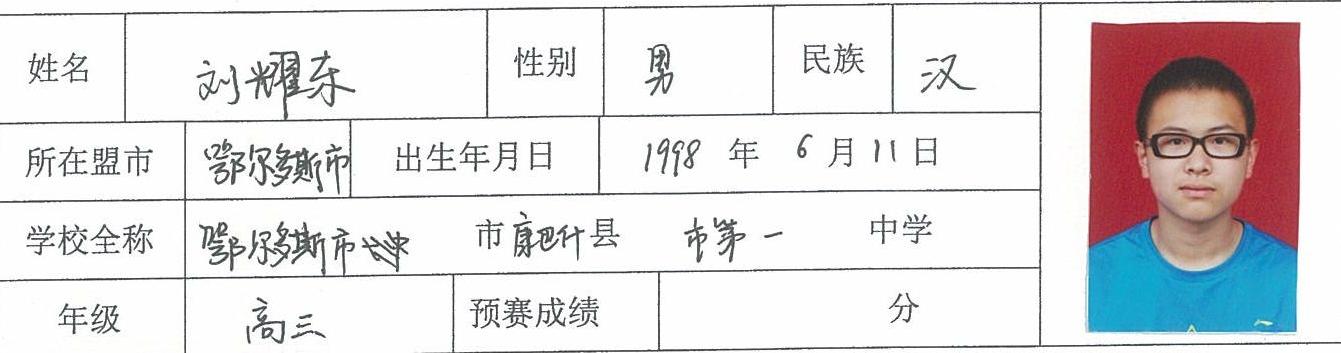 姓名 刘耀东 性别 男 民族 汉
所在盟市 鄂尔多斯市 出生年月日 1998 年 6 月 11 日
学校全称 鄂尔多斯市 市 康巴什 县 市第一 中学
年级 高三 预赛成绩 分